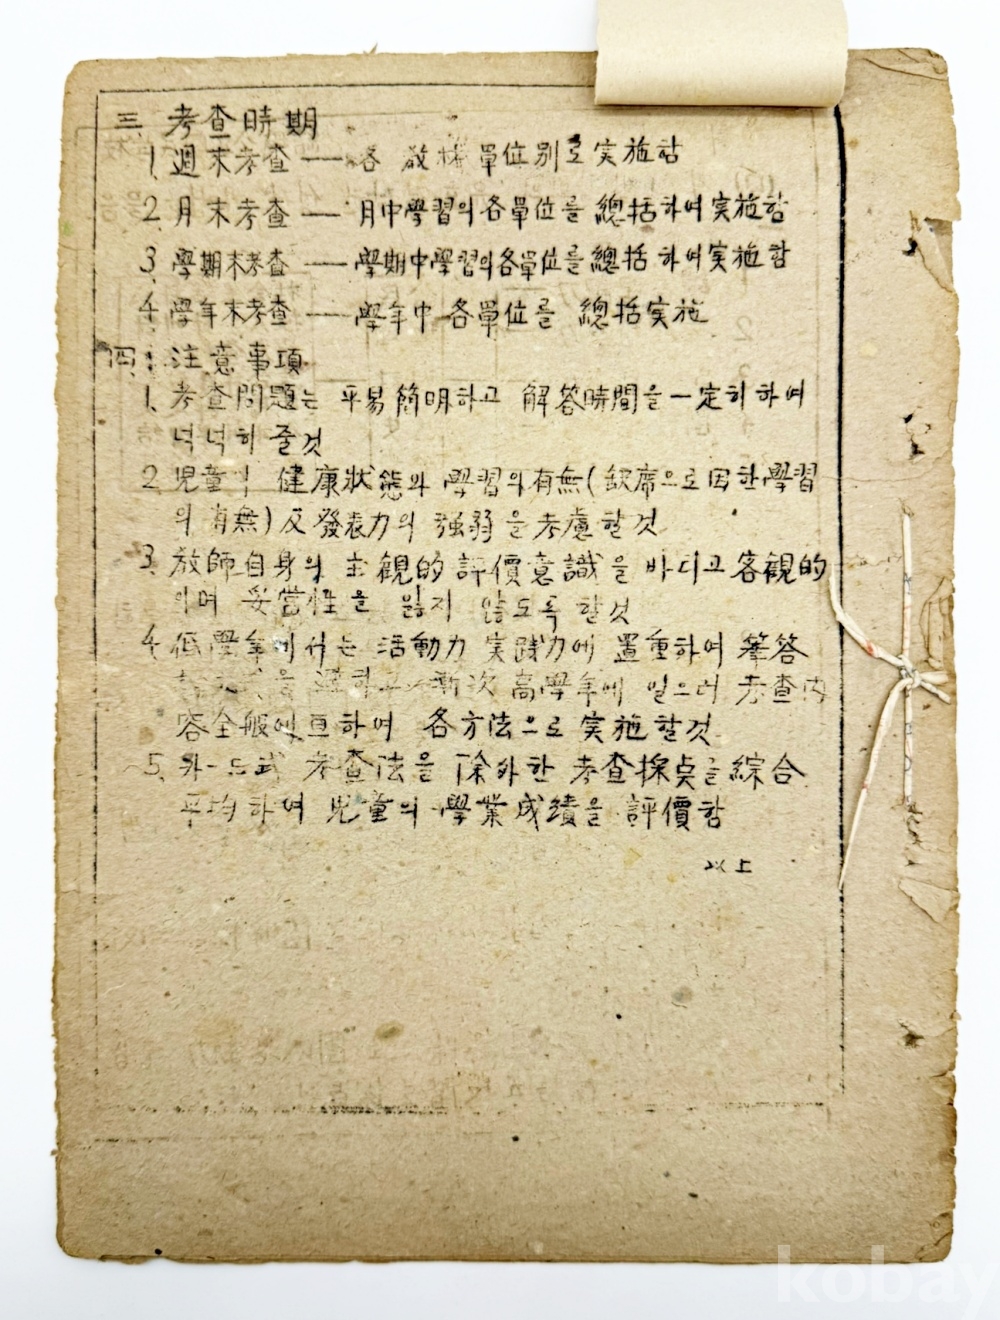 三. 考查時期
1. 週末考查 — 各 敎材 單位別로 実施함
2. 月末考查 — 月中學習의 各單位를 總括하여 実施함
3. 學期末考查 — 學期中學習의 各單位를 總括하여 実施함
4. 學年末考查 — 學年中 各單位를 總括実施
四. 注意事項
1. 考查問題는 平易簡明하고 解答時間을 一定히 하여
넉넉히 줄것
2. 児童의 健康狀態와 學習의 有無(缺席으로因한學習
의 有無) 及 發表力의 強弱을 考慮할것
3. 敎師自身의 主觀的 評價意識을 바리고 客觀的
이며 妥當性을 잃지 않도록 할것
4. 低學年에서는 活動力 実踐力에 置重하여 筆答
을 漸次 高學年에 일으러 考查內
容全般에 亘하여 各方法으로 実施할것
5. 考查法을 除外한 考查採点을 綜合
平均하여 児童의 學業成績을 評價함
以上
kobay